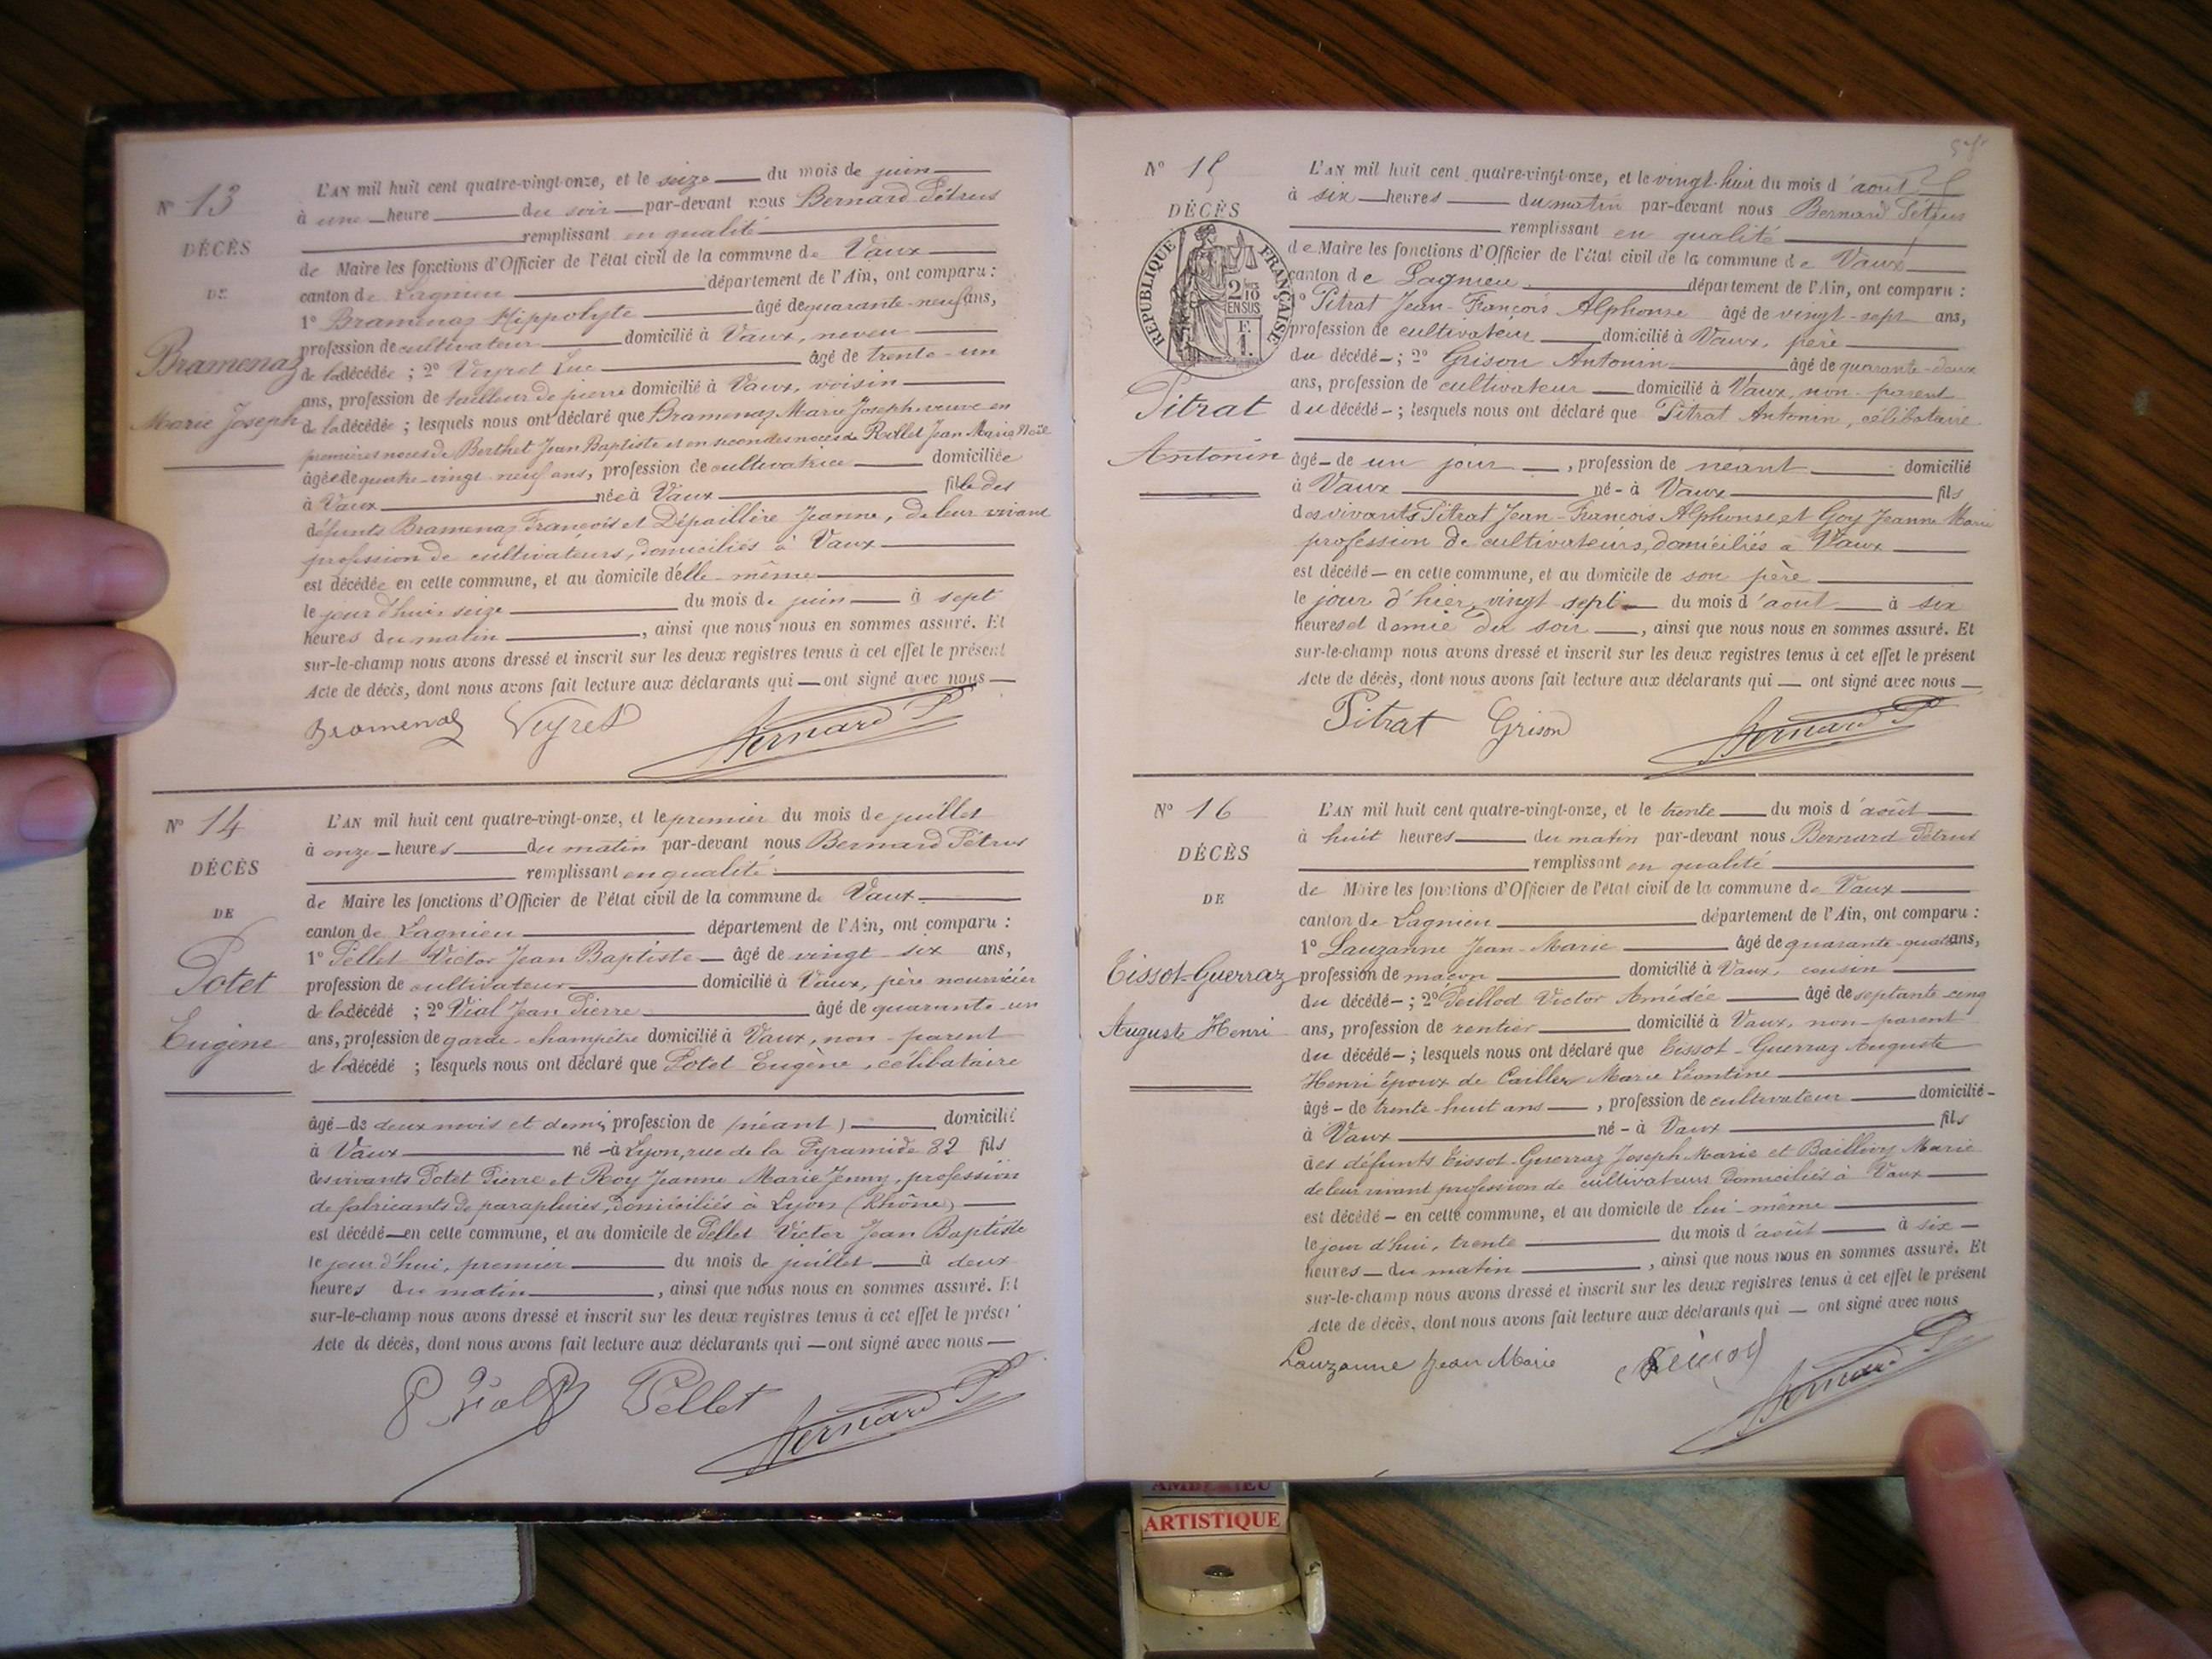 N° 13
DÉCÈS
DE
Bramenaz
Marie Joseph
L'AN mil huit cent quatre-vingt-onze, et le seize du mois de juin
à une heure du soir par-devant nous Bernard Pétrus
remplissant en qualité
de Maire les fonctions d'Officier de l'état civil de la commune de Vaux
canton de Lagnieu département de l'Ain, ont comparu :
1° Bramenaz Hippolyte âgé de quarante-neuf ans,
profession de cultivateur domicilié à Vaux, neveu
de la décédée ; 2° Veyret Luc âgé de trente-un
ans, profession de tailleur de pierre domicilié à Vaux, voisin
de la décédée ; lesquels nous ont déclaré que Bramenaz Marie Joseph veuve en
premières noces de Berthet Jean Baptiste et en secondes noces de Rollet Jean Marie Noël
âgée de quatre-vingt-neuf ans, profession de cultivatrice domiciliée
à Vaux née à Vaux fille des
défunts Bramenaz François et Dépaillère Jeanne, de leur vivant
profession de cultivateurs, domiciliés à Vaux
est décédée en cette commune, et au domicile d'elle-même
le jour d'hui, seize du mois de juin à sept
heures du matin, ainsi que nous nous en sommes assuré. Et
sur-le-champ nous avons dressé et inscrit sur les deux registres tenus à cet effet le présent
Acte de décès, dont nous avons fait lecture aux déclarants qui — ont signé avec nous —
Bramenaz Veyret Bernard P
N° 14
DÉCÈS
DE
Potet
Eugène
L'AN mil huit cent quatre-vingt-onze, et le premier du mois de juillet
à onze heures du matin par-devant nous Bernard Pétrus
remplissant en qualité
de Maire les fonctions d'Officier de l'état civil de la commune de Vaux
canton de Lagnieu département de l'Ain, ont comparu :
1° Pellet Victor Jean Baptiste âgé de vingt-six ans,
profession de cultivateur domicilié à Vaux, père nourricier
de la décédé ; 2° Vial Jean Pierre âgé de quarante-un
ans, profession de garde-champêtre domicilié à Vaux, non-parent
de la décédé ; lesquels nous ont déclaré que Potet Eugène, célibataire
âgé — de deux mois et demi, profession de (néant) domicilié
à Vaux né — à Lyon, rue de la Pyramide 82 fils
des vivants Potet Pierre et Roy Jeanne Marie Jenny, profession
de fabricants de parapluies, domiciliés à Lyon (Rhône)
est décédé — en cette commune, et au domicile de Pellet Victor Jean Baptiste
le jour d'hui, premier du mois de juillet à deux
heures du matin, ainsi que nous nous en sommes assuré. Et
sur-le-champ nous avons dressé et inscrit sur les deux registres tenus à cet effet le présent
Acte de décès, dont nous avons fait lecture aux déclarants qui — ont signé avec nous —
P Vial Pellet Bernard P
N° 15
DÉCÈS
RÉPUBLIQUE FRANÇAISE
2/10 EN SUS
F.
1.
Pitrat
Antonin
L'AN mil huit cent quatre-vingt-onze, et le vingt-huit du mois d'août
à six heures du matin par-devant nous Bernard Pétrus
remplissant en qualité
de Maire les fonctions d'Officier de l'état civil de la commune de Vaux
canton de Lagnieu département de l'Ain, ont comparu :
1° Pitrat Jean-François Alphonse âgé de vingt-sept ans,
profession de cultivateur domicilié à Vaux, père
du décédé — ; 2° Grison Antonin âgé de quarante-deux
ans, profession de cultivateur domicilié à Vaux, non-parent
du décédé — ; lesquels nous ont déclaré que Pitrat Antonin, célibataire
âgé — de un jour, profession de néant domicilié
à Vaux né — à Vaux fils
des vivants Pitrat Jean-François Alphonse et Goy Jeanne Marie
profession de cultivateurs, domiciliés à Vaux
est décédé — en cette commune, et au domicile de son père
le jour d'hier, vingt-sept du mois d'août à six
heures et demie du soir, ainsi que nous nous en sommes assuré. Et
sur-le-champ nous avons dressé et inscrit sur les deux registres tenus à cet effet le présent
Acte de décès, dont nous avons fait lecture aux déclarants qui — ont signé avec nous —
Pitrat Grison Bernard P
N° 16
DÉCÈS
DE
Tissot-Guerraz
Auguste Henri
L'AN mil huit cent quatre-vingt-onze, et le trente du mois d'août
à huit heures du matin par-devant nous Bernard Pétrus
remplissant en qualité
de Maire les fonctions d'Officier de l'état civil de la commune de Vaux
canton de Lagnieu département de l'Ain, ont comparu :
1° Lauzanne Jean-Marie âgé de quarante-quatre ans,
profession de maçon domicilié à Vaux, cousin
du décédé — ; 2° Peillod Victor Amédée âgé de septante-cinq
ans, profession de rentier domicilié à Vaux, non-parent
du décédé — ; lesquels nous ont déclaré que Tissot-Guerraz Auguste
Henri époux de Cailler Marie Léontine
âgé — de trente-huit ans, profession de cultivateur domicilié —
à Vaux né — à Vaux fils
des défunts Tissot-Guerraz Joseph Marie et Baillivy Marie
de leur vivant profession de cultivateurs domiciliés à Vaux
est décédé — en cette commune, et au domicile de lui-même
le jour d'hui, trente du mois d'août à six —
heures — du matin, ainsi que nous nous en sommes assuré. Et
sur-le-champ nous avons dressé et inscrit sur les deux registres tenus à cet effet le présent
Acte de décès, dont nous avons fait lecture aux déclarants qui — ont signé avec nous
Lauzanne Jean Marie Bernard P
ARTISTIQUE